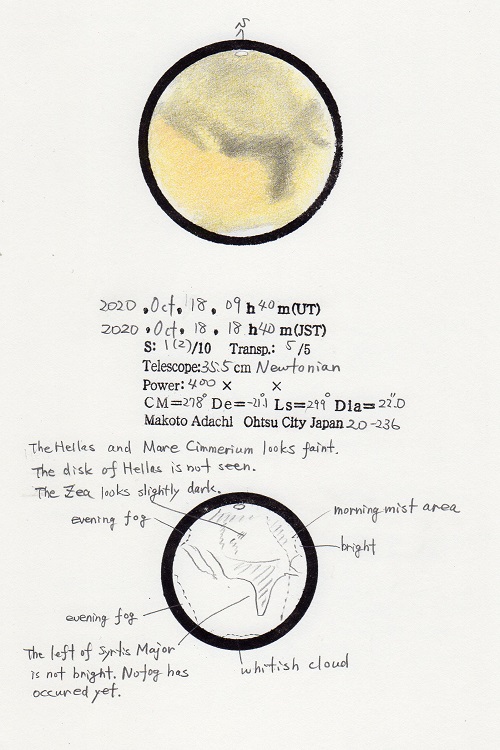 2020, Oct, 18, 09h40m(UT)
2020, Oct, 18, 18h40m(JST)
S: 1(2)/10 Transp.: 5/5
Telescope: 35.5cm Newtonian
Power: 400× ×
CM=278° De=-21.1 Ls=299° Dia=22.0"
Makoto Adachi Ohtsu City Japan 20-236
The Hellas and Mare Cimmerium looks faint.
The disk of Hellas is not seen.
The Zea looks slightly dark.
evening fog
morning mist area
bright
evening fog
The left of Syrtis Major
is not bright. No fog has
occured yet.
whitish cloud